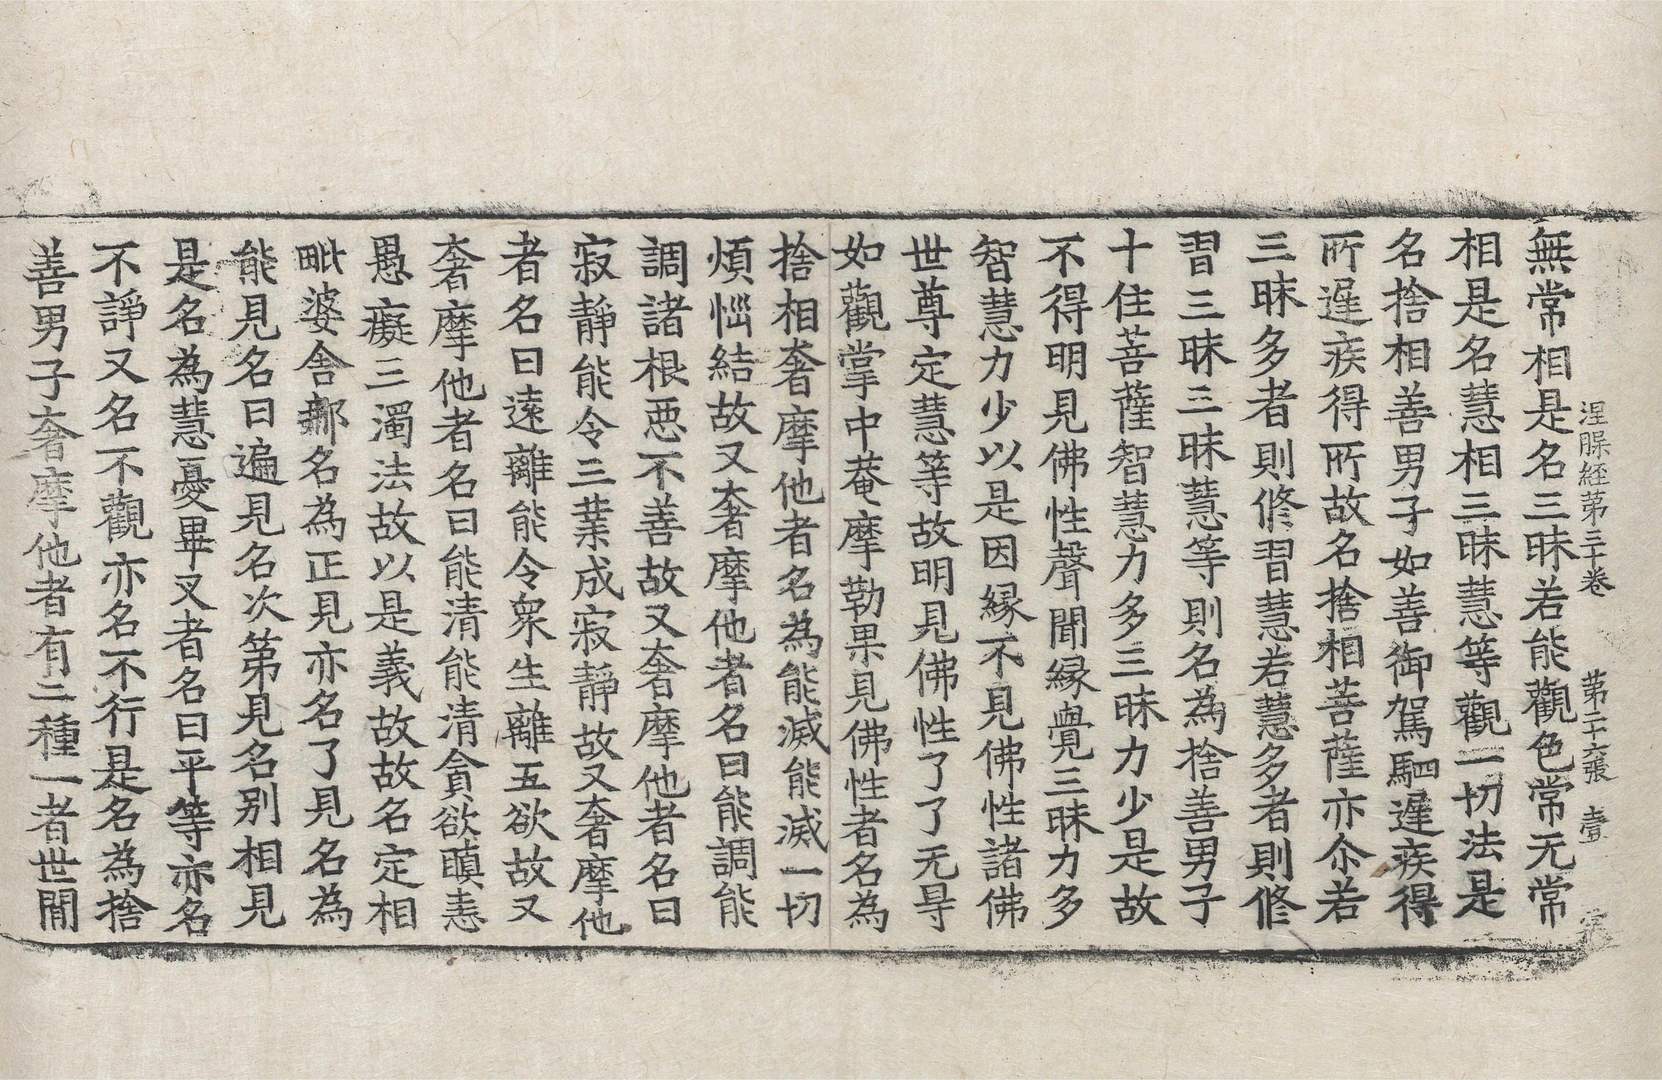 涅槃経第三十卷　第二十六張　壹
無常相是名三昧若能觀色常无常
相是名慧相三昧慧等觀一切法是
名捨相善男子如善御駕駟遲疾得
所遲疾得所故名捨相菩薩亦尒若
三昧多者則修習慧若慧多者則修
習三昧三昧慧等則名為捨善男子
十住菩薩智慧力多三昧力少是故
不得明見佛性聲聞縁覺三昧力多
智慧力少以是因縁不見佛性諸佛
世尊定慧等故明見佛性了了无㝵
如觀掌中菴摩勒果見佛性者名為
捨相奢摩他者名為能滅能滅一切
煩惱結故又奢摩他者名曰能調能
調諸根惡不善故又奢摩他者名曰
寂靜能令三業成寂靜故又奢摩他
者名曰遠離能令衆生離五欲故又
奢摩他者名曰能清能清貪欲瞋恚
愚癡三濁法故以是義故故名定相
毗婆舍那名為正見亦名了見名為
能見名曰遍見名次第見名别相見
是名為慧憂畢叉者名曰平等亦名
不諍又名不觀亦名不行是名為捨
善男子奢摩他者有二種一者世間